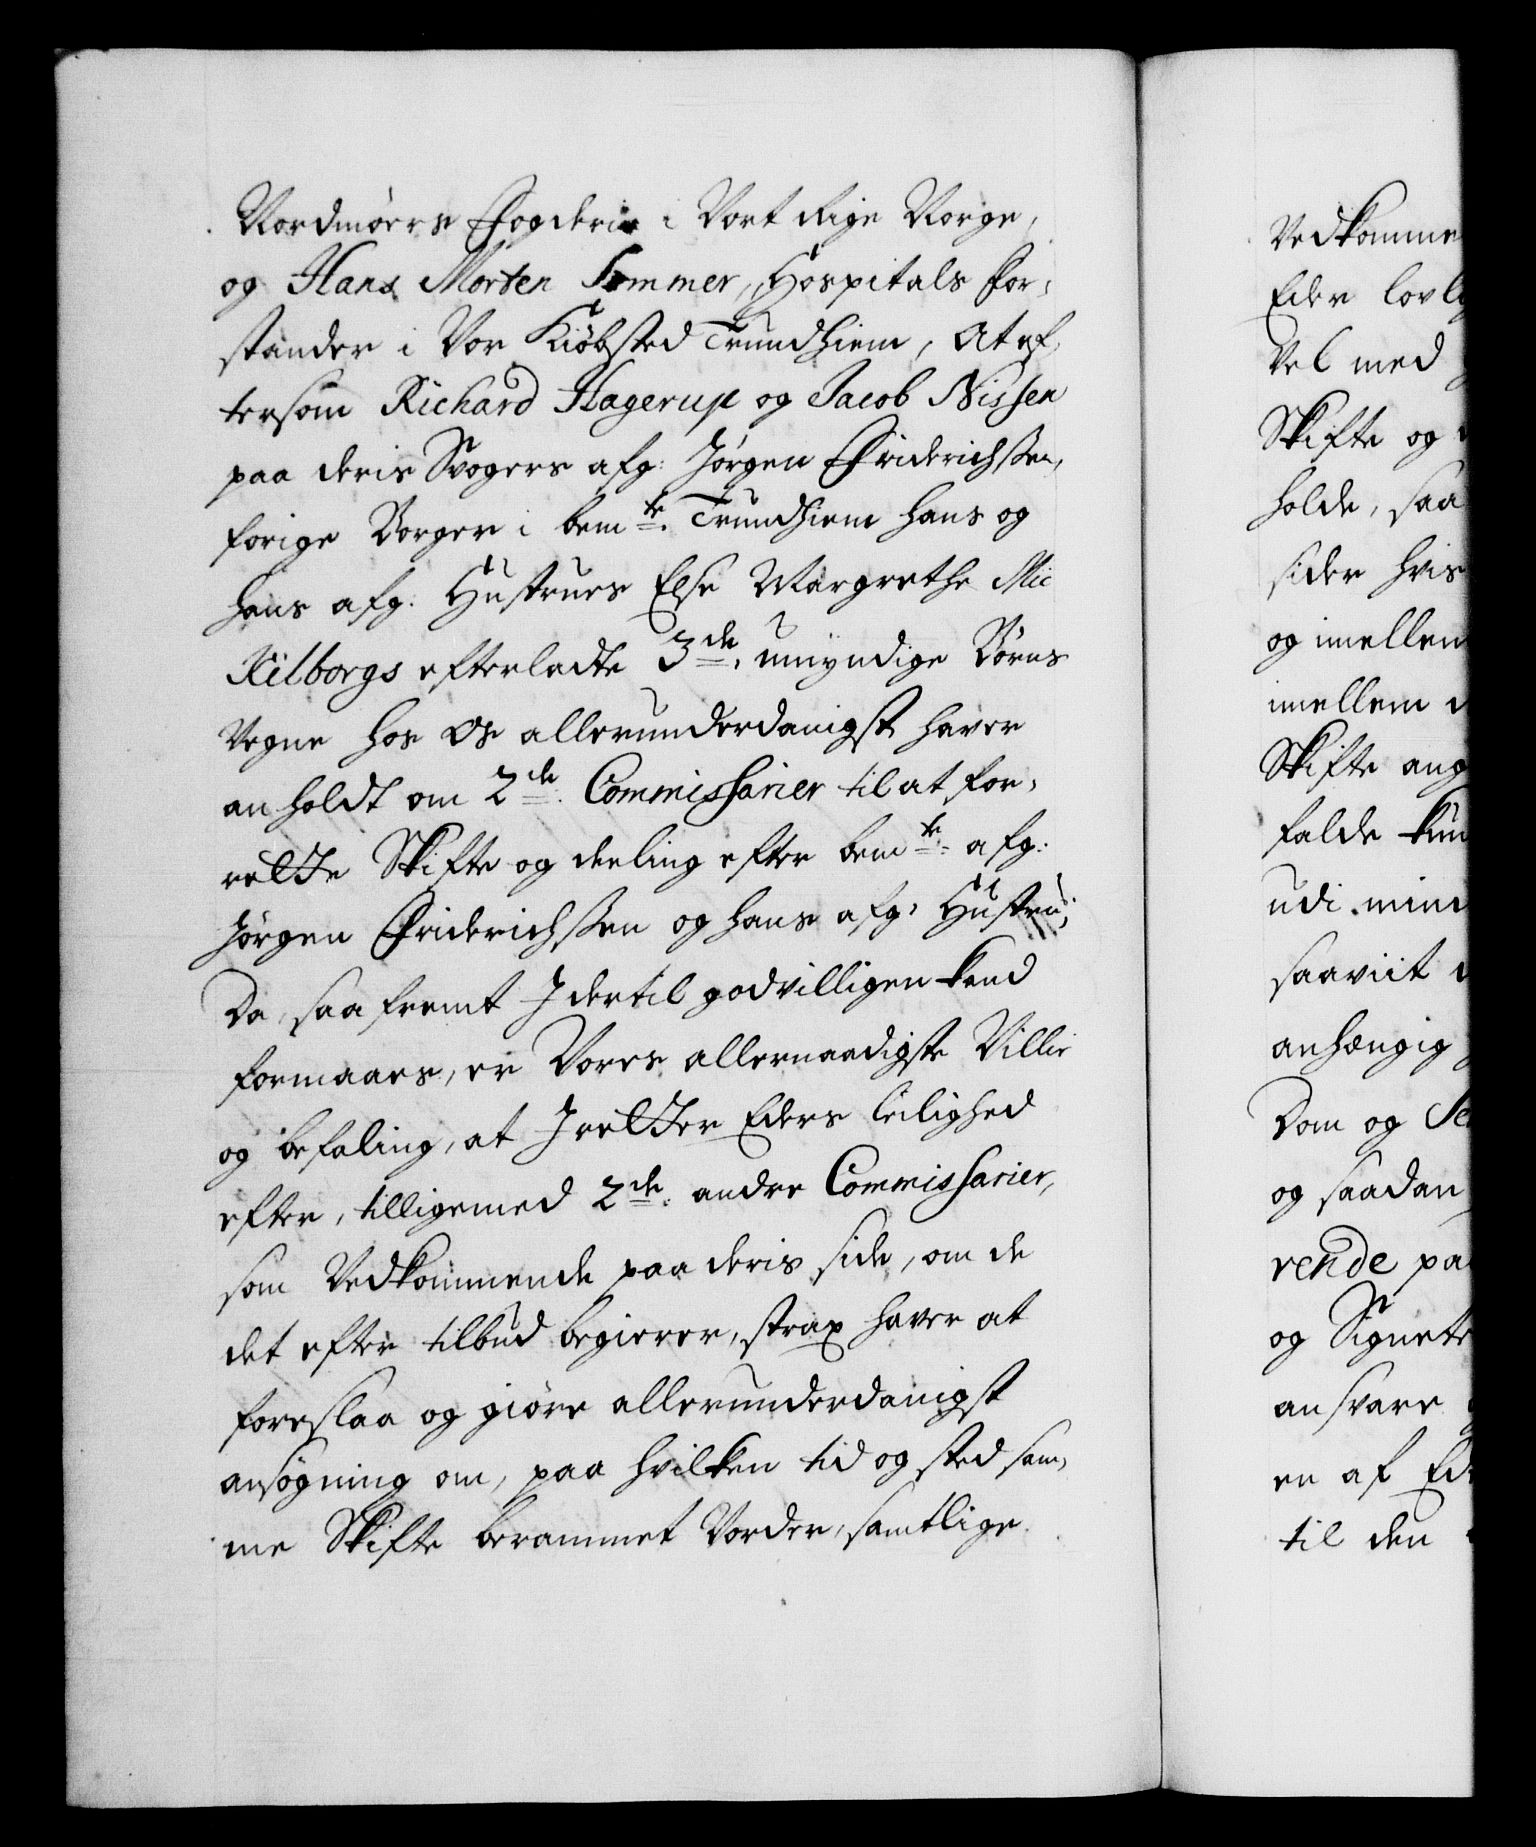 Nordmöers Fogderie i Vort Rige Norge,
og Hans Morten Sommer, Hospitals For-
stander i Vor Kiöbsted Trundhiem, At ef-
tersom Richard Hagerup og Jacob Nissen
paa deris Svogers afg: Jörgen Friderichssen,
forige Borger i bem.te Trundhiem hans og
hans afg. Hustrues Else Margrethe Mic
Kilborgs efterladte 3de umyndige Börns
Vegne hos Os allerunderdanigst haver
anholdt om 2de Commissarier til at for-
rette Skifte og deeling efter bem.te afg:
Jörgen Friderichssen og hans afg: Hustrue;
Da, saafremt I dertil godvilligen kand
formaaes, er Vores allernaadigste Villie
og befaling, at I retter Eders leilighed
efter, tilligemed 2de andre Commissarier,
som Vedkommende paa deris side, om de
det efter tilbud begierer, strax haver at
foreslaa og giöre allerunderdanigst
ansögning om, paa hvilken tid og sted sam-
me Skifte berammet Vorder, samtlige
Vedkomme
Eder lovl
Vel med
Skifte og
holde, saa
sider hvis
og imellem
imellem
Skifte ang
falde kun
udi mind
saaviit
anhængig
Dom og Se
og saadan
rende paa
og Signete
ansvare
en af Ede
til den